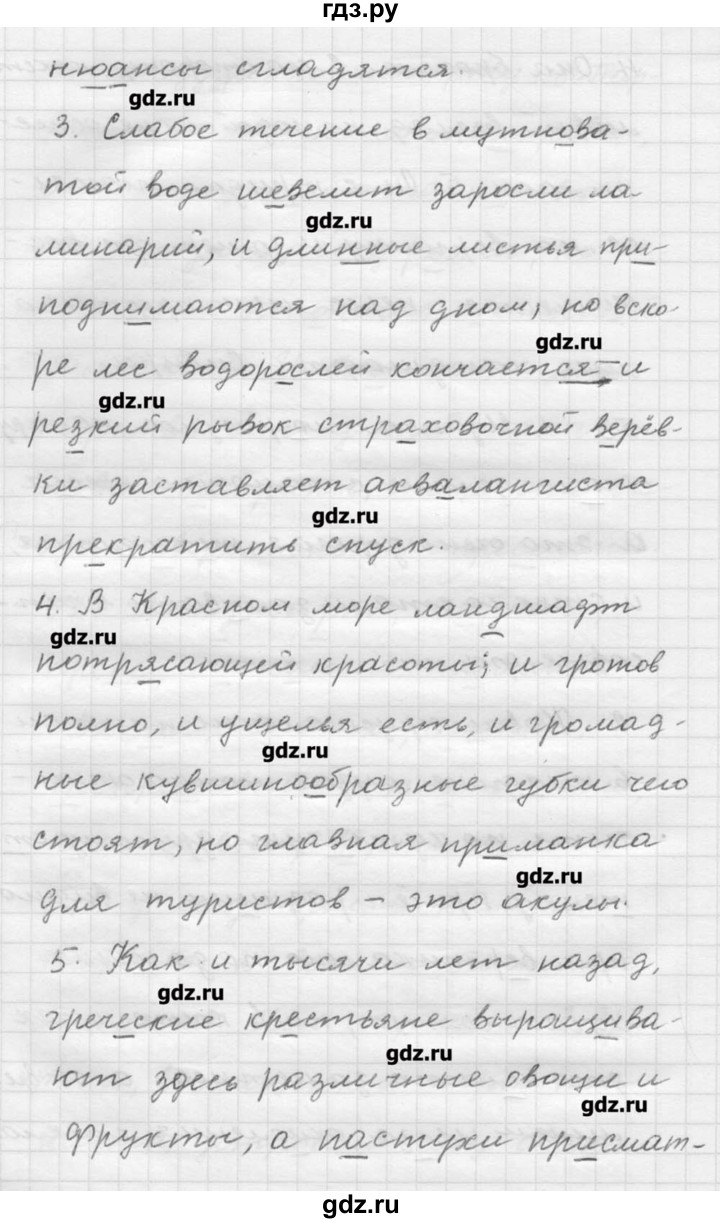 гдз.ру
нюансы сгладятся.
gdz.ru
3. Слабое течение в мутнова-
той воде шевелит заросли ла-
gdz.ru
минарий, и длинные листья при-
поднимаются над дном, но вско-
gdz.ru
ре лес водорослей кончается и
gdz.ru
резкий рывок страховочной верёв-
ки заставляет аквалангиста
gdz.ru
прекратить спуск.
4. В Красном море ландшафт
gdz.ru
потрясающей красоты; и гротов
полно, и ущелья есть, и громад-
gdz.ru
ные кувшинообразные губки чего
стоят, но главная приманка
gdz.ru
для туристов – это акулы.
5. Как и тысячи лет назад,
gdz.ru
греческие крестьяне выращива-
gdz.ru
ют здесь различные овощи и
gdz.ru
фрукты, а пастухи присмат-
gdz.ru